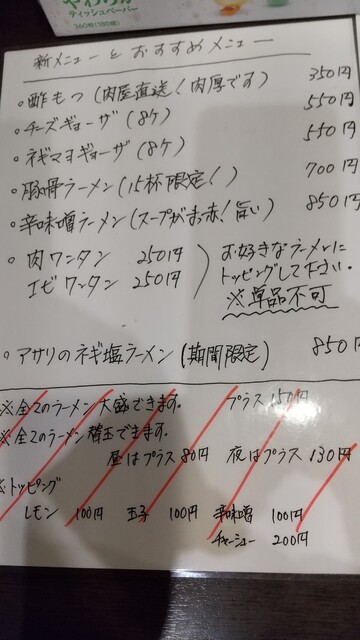 やわらか
ティッシュペーパー
360枚(180組)
新メニューとおすすめメニュー
。酢もつ(肉屋直送！肉厚です) 350円
。チーズギョーザ(8ケ) 550円
。ネギマヨギョーザ(8ケ) 550円
。豚骨ラーメン(15杯限定！) 700円
。辛味噌ラーメン(スープがまっ赤！旨い) 850円
。肉ワンタン 250円 お好きなラーメンに
エビワンタン 250円 トッピングして下さい。
※単品不可
。アサリのネギ塩ラーメン(期間限定) 850円
※全てのラーメン大盛できます。 プラス150円
※全てのラーメン替玉できます。
昼はプラス80円 夜はプラス130円
※トッピング
レモン 100円 玉子 100円 辛味噌 100円
チャーシュー 200円